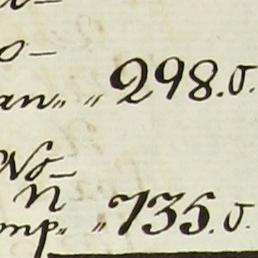 o-
an„ „ 298.0.
No-
n
mp„ „ 735.0.